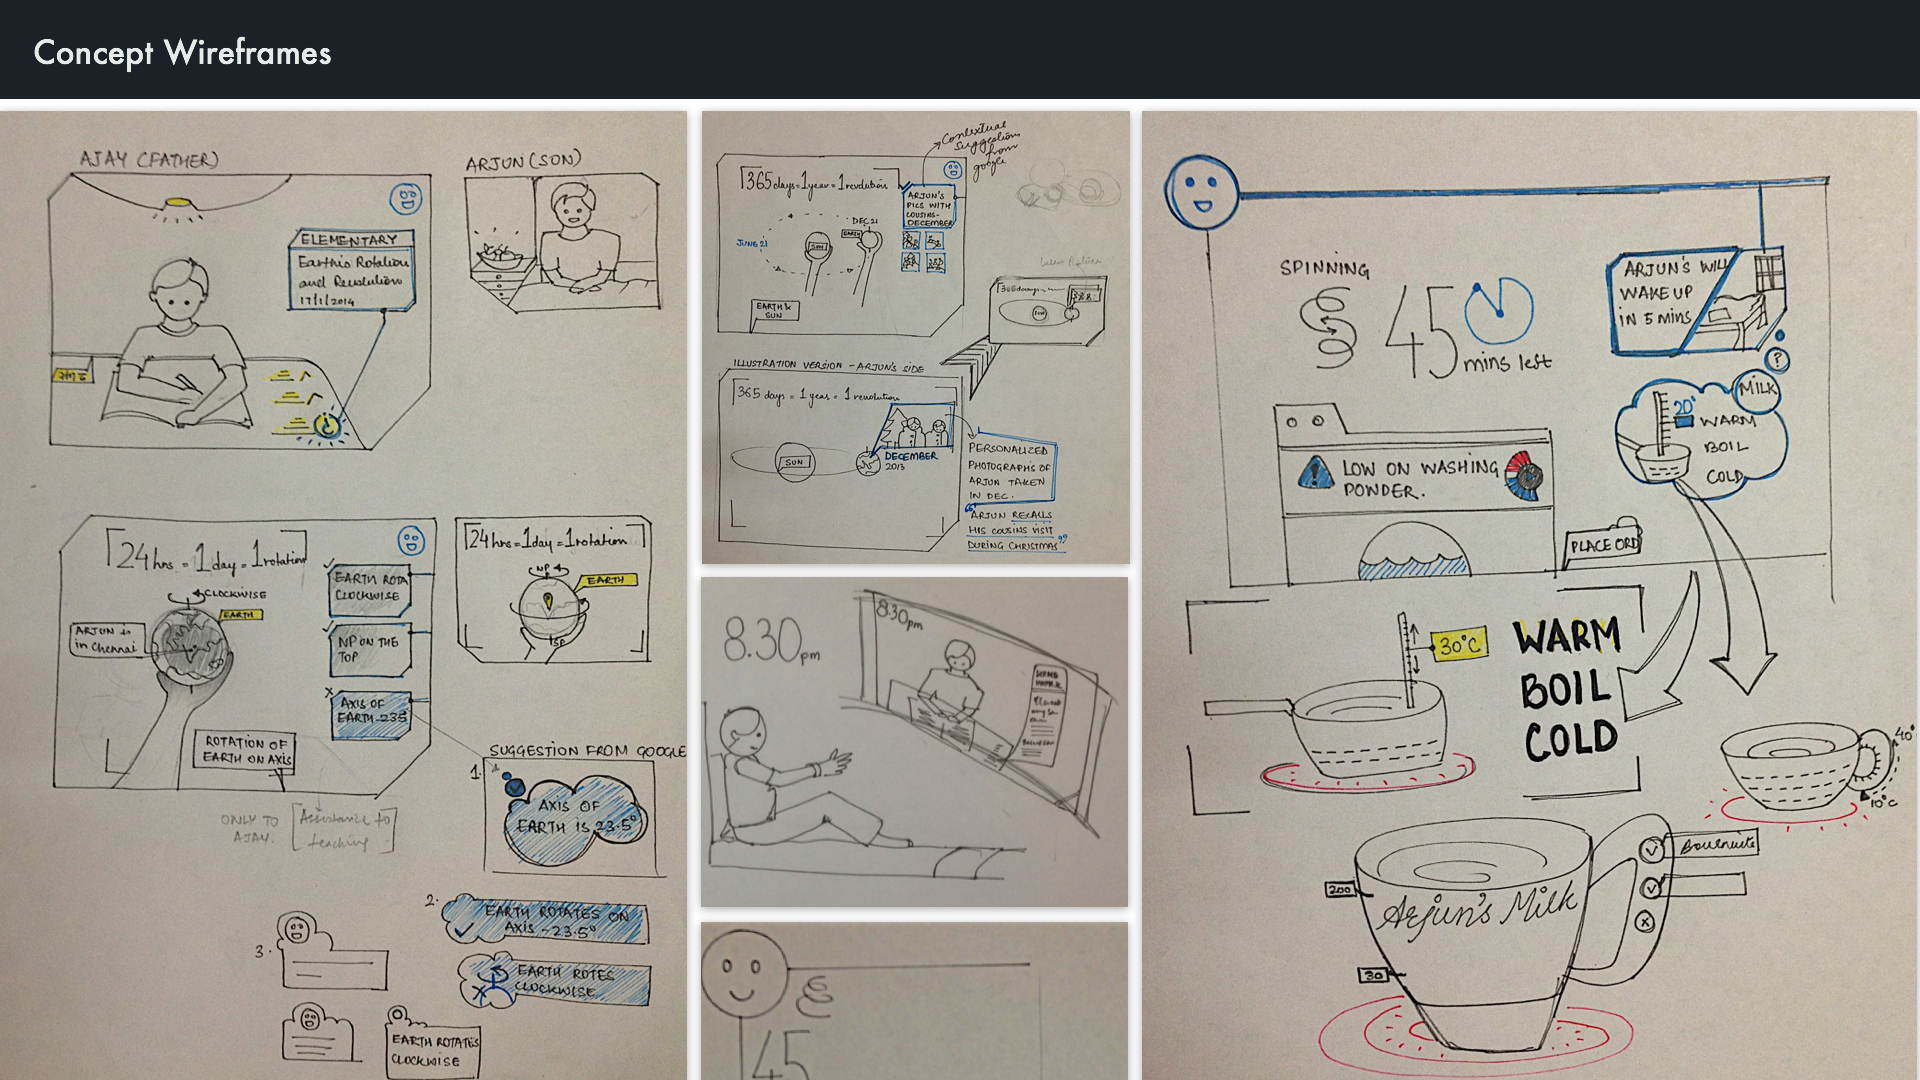 Concept Wireframes
AJAY (FATHER)
ELEMENTARY
Earth's Rotation
and Revolution
17/1/2014
ARJUN (SON)
24 hrs = 1 day = 1 rotation
CLOCKWISE
EARTH
ARJUN is
in Chennai
EARTH ROTA
CLOCKWISE
NP ON THE
TOP
AXIS OF
EARTH -23.5
ROTATION OF
EARTH ON AXIS
ONLY TO
AJAY.
Assistance to
teaching
24 hrs = 1 day = 1 rotation
NP
EARTH
SP
SUGGESTION FROM GOOGLE
1.
AXIS OF
EARTH IS 23.5°
2.
EARTH ROTATES ON
AXIS -23.5°
EARTH ROTES
CLOCKWISE
3.
EARTH ROTATES
CLOCKWISE
Contextual
Suggestions
from
google
365 days = 1 year = 1 revolution
ARJUN'S
PICS WITH
COUSINS-
DECEMBER
DEC 21
EARTH
JUNE 21
SUN
EARTH &
SUN
ILLUSTRATION VERSION - ARJUN'S SIDE
365 days = 1 year = 1 revolution
SUN
DECEMBER
2013
PERSONALIZED
PHOTOGRAPHS OF
ARJUN TAKEN
IN DEC.
"ARJUN RECALLS
HIS COUSINS VISIT
DURING CHRISTMAS"
8.30pm
8.30pm
HOME
WORK
45
SPINNING
45
mins left
ARJUN'S WILL
WAKE UP
IN 5 MINS
?
MILK
20°
WARM
BOIL
COLD
! LOW ON WASHING
POWDER.
PLACE ORD
30°C
WARM
BOIL
COLD
40°
10°c
200
30
Arjun's Milk
Bournvita